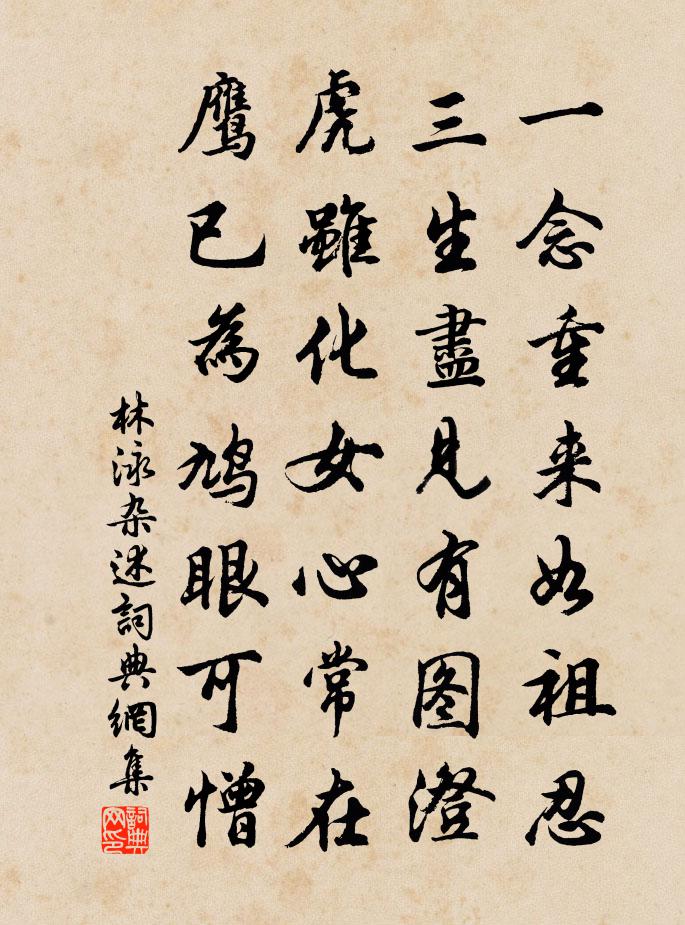 一念重来如祖忍
三生盡見有图澄
虎雖化女心常在
鹰已為鸠眼可憎
林泳杂述詞典網集
詞典网印